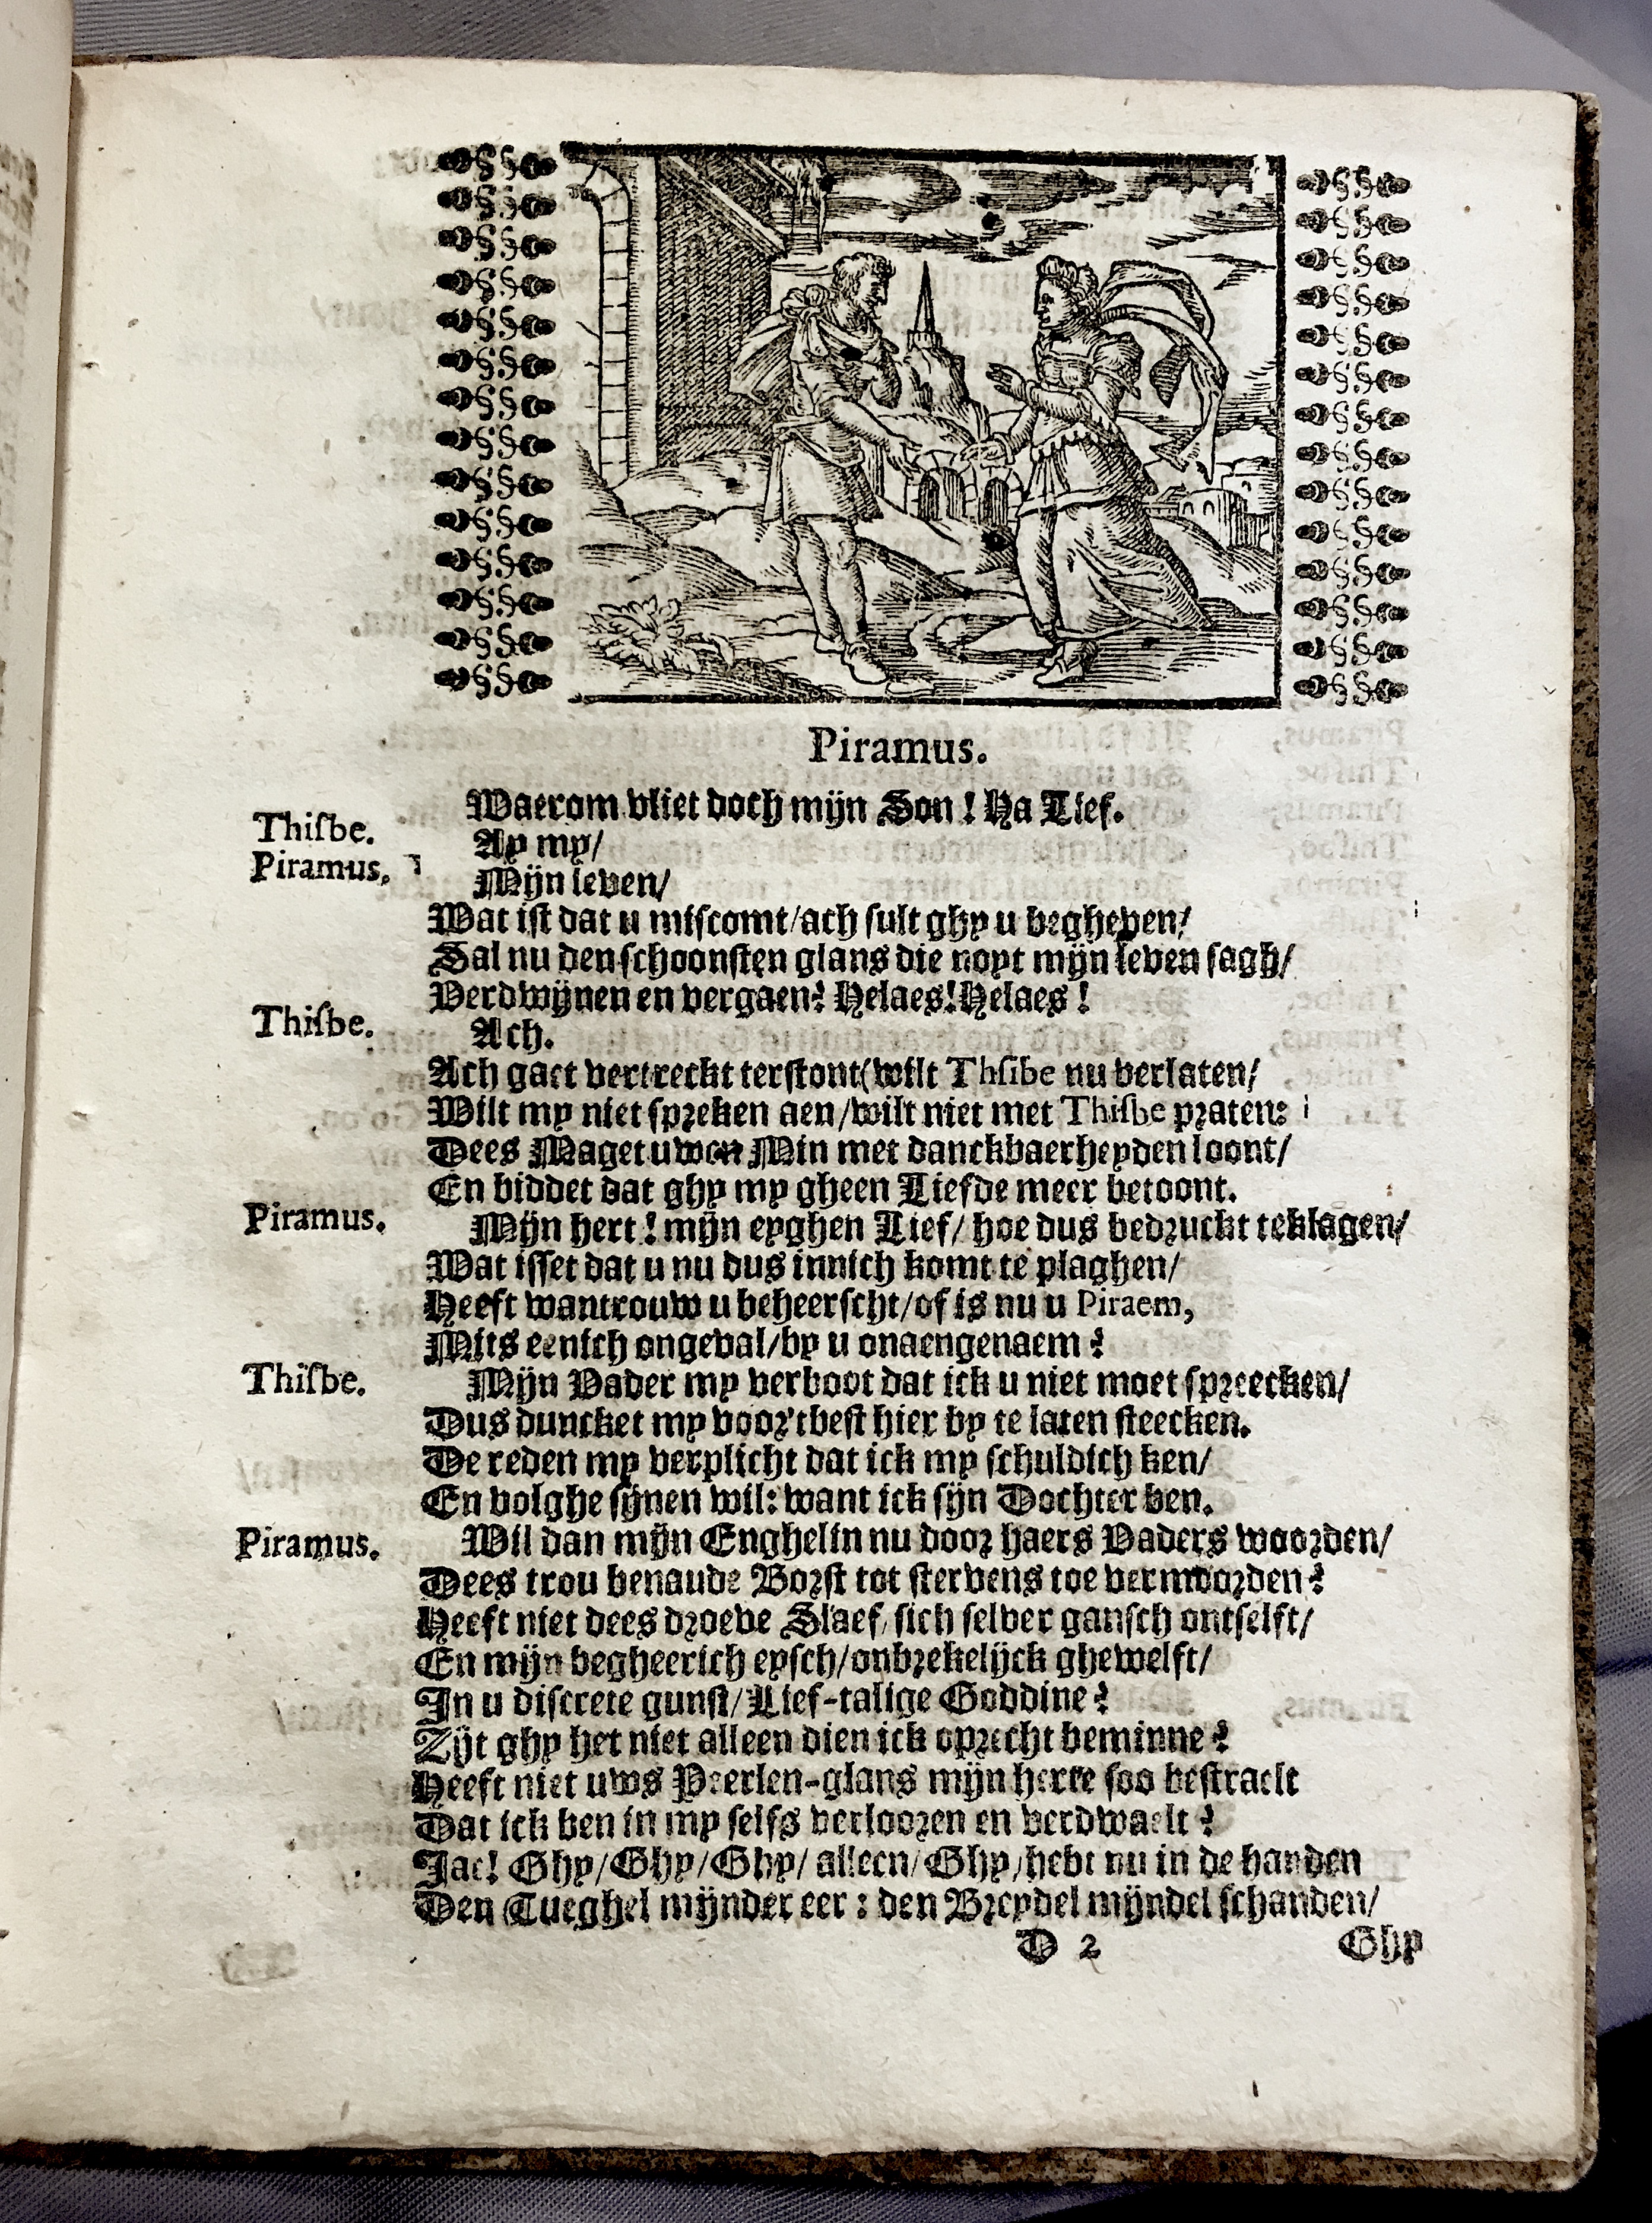 Piramus.
Waerom vliet doch mijn Son ! Ha Lief.
Thisbe. Ay my/
Piramus. Mijn leven/
Wat ist dat u miscomt/ach sult ghy u begheven/
Sal nu den schoonsten glans die noyt mijn leven sagh/
Verdwijnen en vergaen? Helaes! Helaes !
Thisbe. Ach.
Ach gaet vertreckt terstont(wilt Thsibe nu verlaten/
Wilt my niet spreken aen/wilt niet met Thisbe praten:
Dees Maget uwen Min met danckbaerheyden loont/
En biddet dat ghy my gheen Liefde meer betoont.
Piramus. Mijn hert ! mijn eyghen Lief/ hoe dus bedruckt te klagen/
Wat isset dat u nu dus innich komt te plaghen/
Heeft wantrouw u beheerscht/of is nu u Piraem,
Mits eenich ongeval/by u onaengenaem ?
Thisbe. Mijn Vader my verboot dat ick u niet moet spreecken/
Dus duncket my voor'tbest hier by te laten steecken.
De reden my verplicht dat ick my schuldich ken/
En volghe sijnen wil: want ick sijn Dochter ben.
Piramus. Wil dan mijn Enghelin nu door haers Vaders woorden/
Dees trou benaude Borst tot stervens toe vermoorden?
Heeft niet dees droeve Slaef, sich selver gansch ontselft/
En mijn begheerich eysch/onbrekelijck ghewelft/
In u discrete gunst/Lief-talige Goddine?
Zijt ghy het niet alleen dien ick oprecht beminne?
Heeft niet uws Peerlen-glans mijn herte soo bestraelt
Dat ick ben in my selfs verlooren en verdwaelt?
Jae! Ghy/Ghy/Ghy/ alleen/Ghy/hebt nu in de handen
Den Tueghel mijnder eer : den Breydel mijndel schanden/
D 2 Ghy